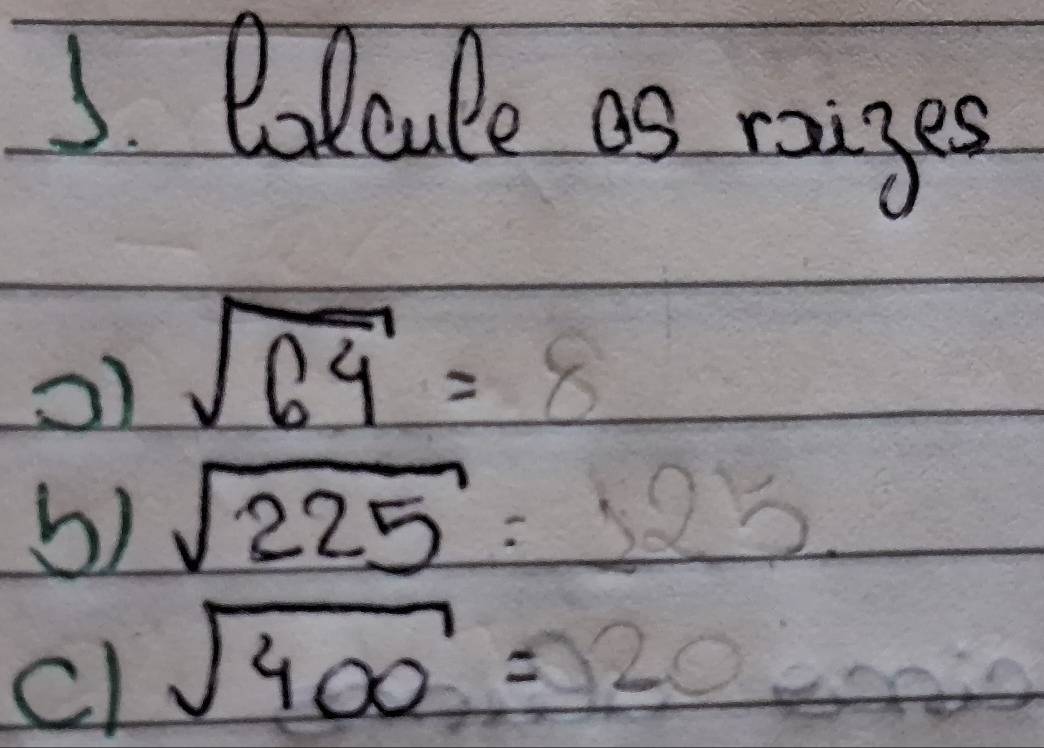 1. Calcule as raizes
a) √64 = 8
b) √225 = 125.
c) √400 = 20